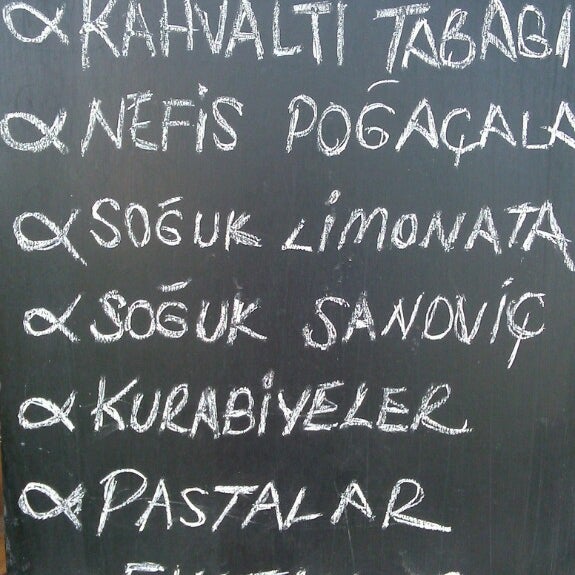 KAHVALTI TABAĞI
NEFİS POĞAÇALA
SOĞUK LİMONATA
SOĞUK SANDVİÇ
KURABİYELER
PASTALAR